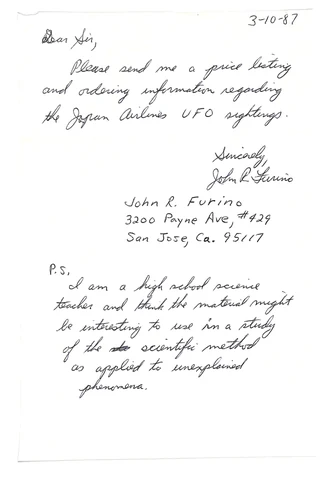 3-10-87
Dear Sir,
Please send me a price listing
and ordering information regarding
the Japan Airlines UFO sightings.
Sincerely,
John R. Furino
John R. Furino
3200 Payne Ave, #429
San Jose, Ca. 95117
P.S,
I am a high school science
teacher and think the material might
be interesting to use in a study
of the scientific method
as applied to unexplained
phenomena.